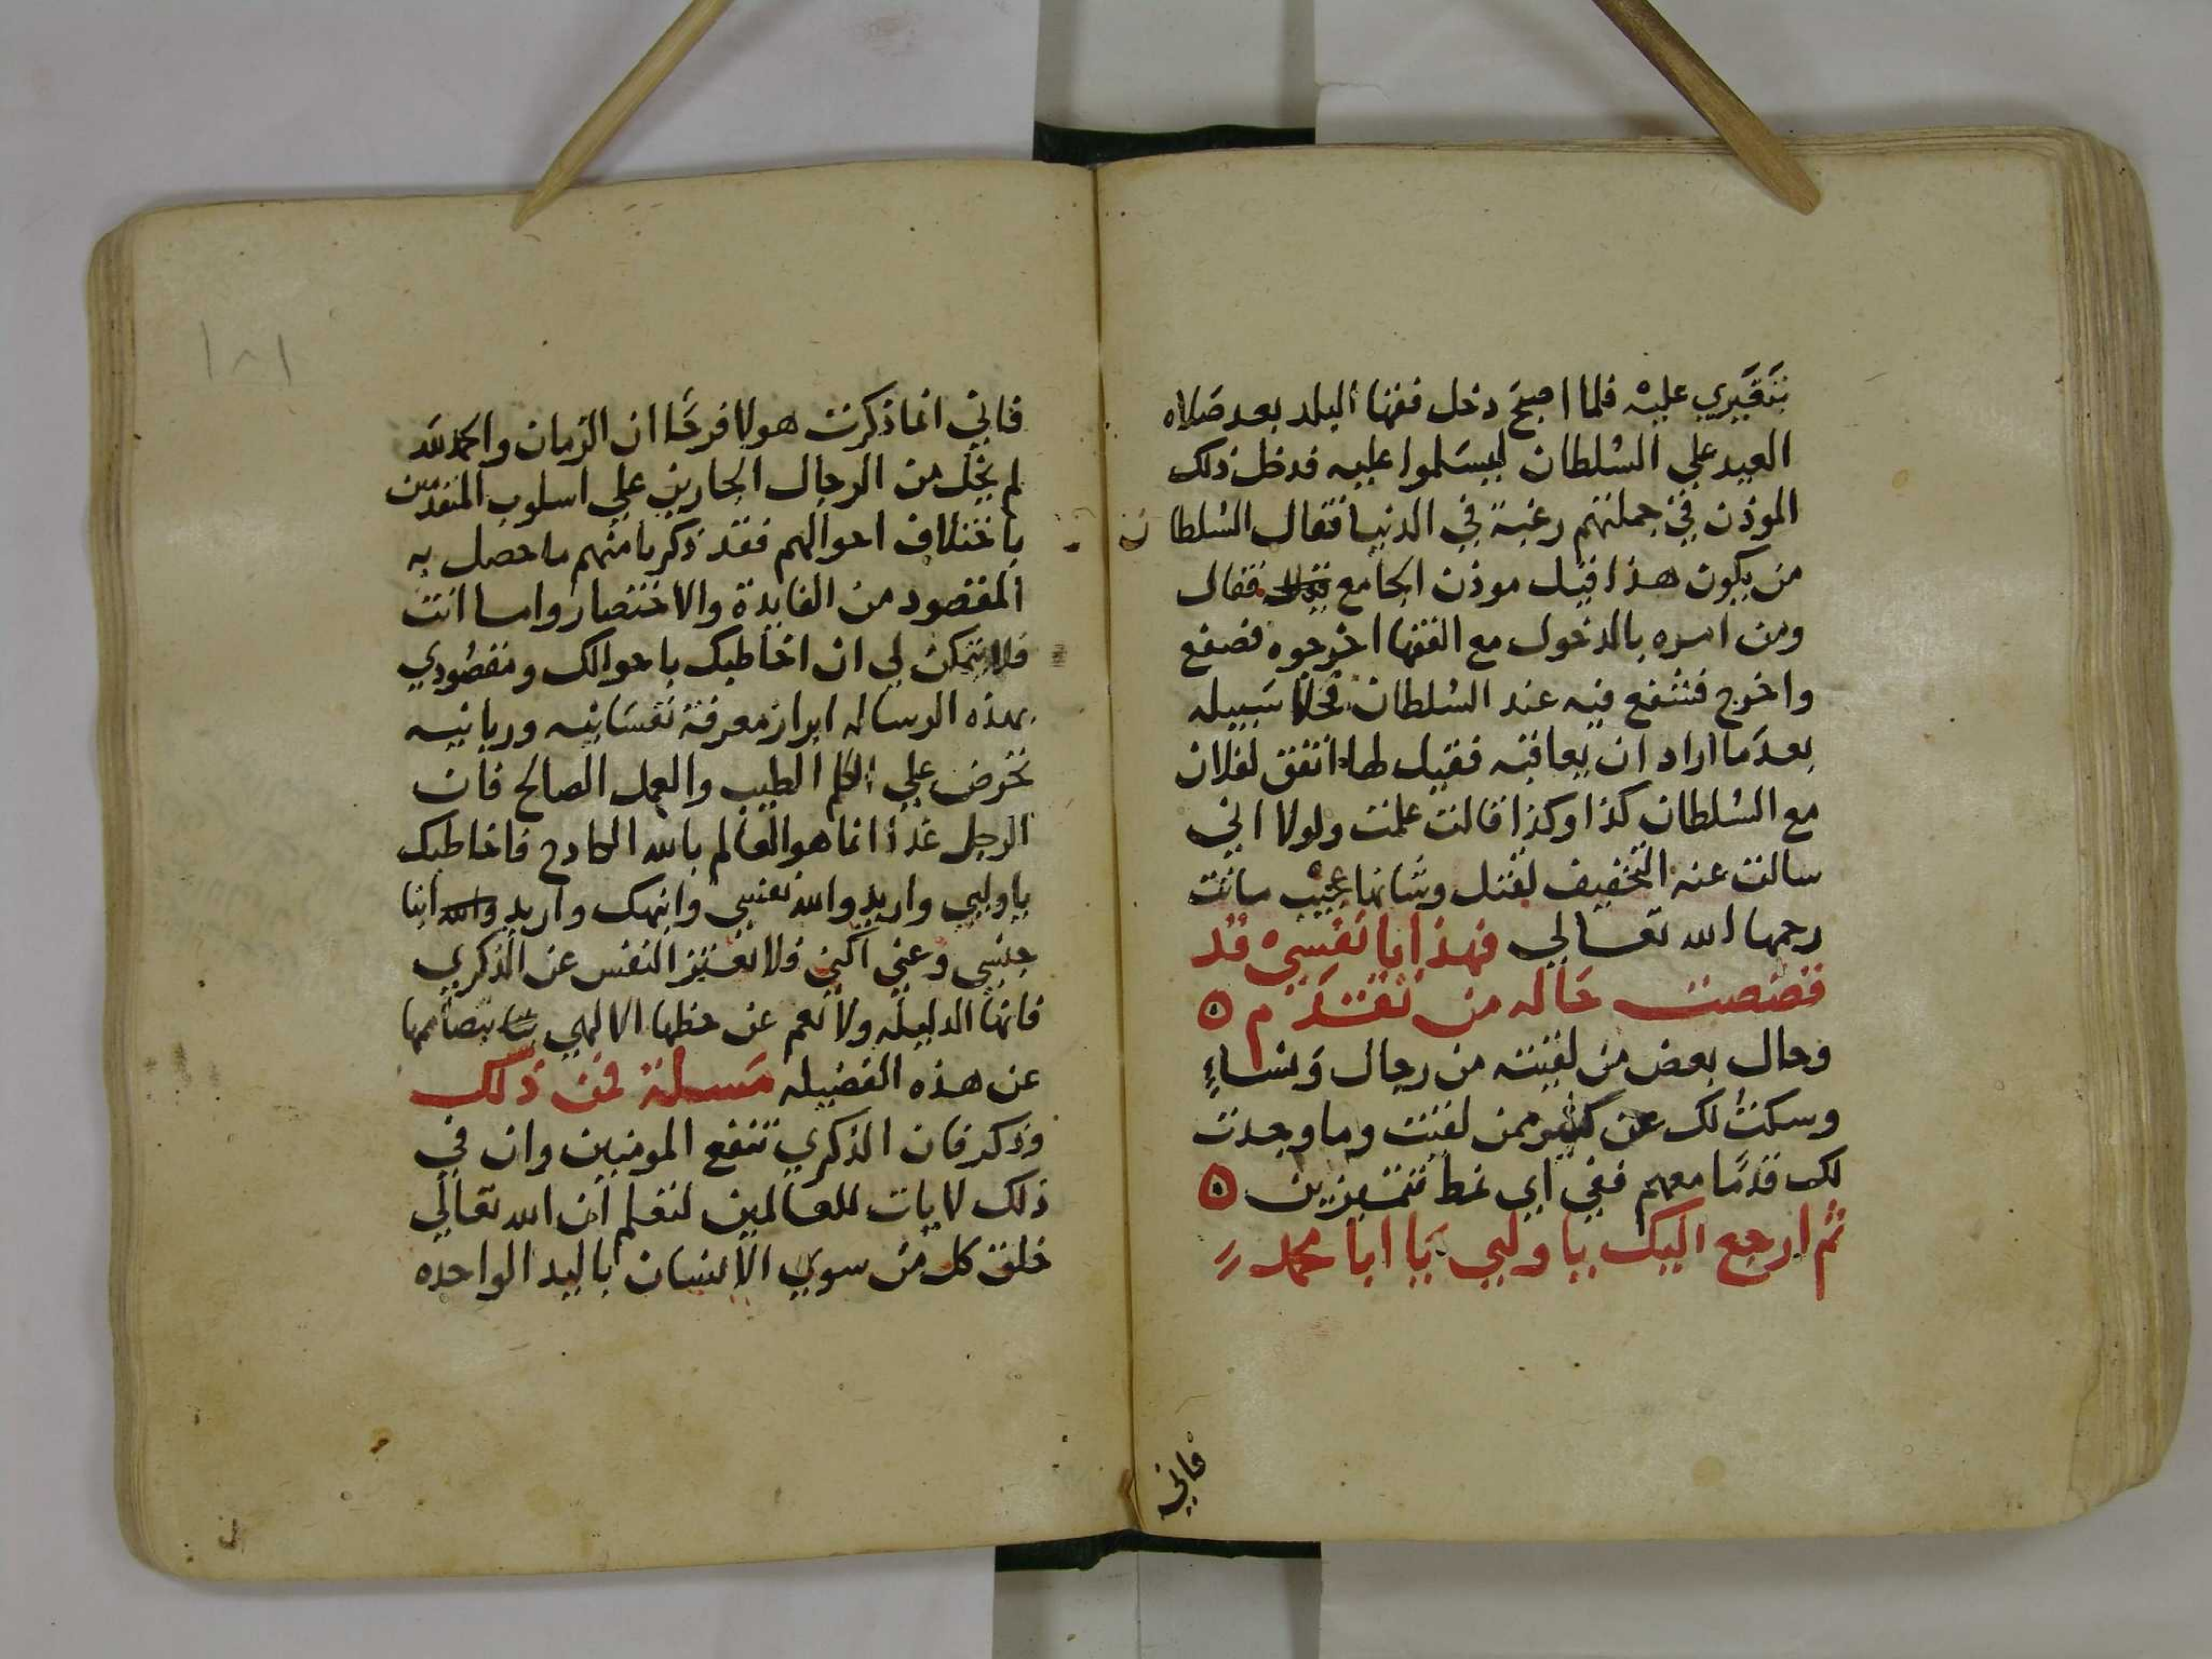 بتقيري عليه فلما اصبح دخل فقها البلد بعد صلاه
العيد علي السلطان ليسلموا عليه فدخل ذلك
الموذن في جملتهم رغبة في الدنيا فقال السلطان
من يكون هذا قيل موذن الجامع فقال
ومن امره بالدخول مع الفقها اخرجوه فصفع
واخرج فشفع فيه عند السلطان فخلا سبيله
بعد ما اراد ان يعاقبه فقيل لها اتفق لفلان
مع السلطان كذا وكذا قالت علمت ولولا اني
سالت عنه التخفيف لقتل وشانها عجيب ماتت
رحمها الله تعالي فهذا يا نفسي قد
قصصت حاله من تقدم ه
وحال بعض من لقيته من رجال ونساء
وسكت لك عن كثير ممن لقيت وما وجدت
لك قدما معهم ففي اي نمط تتميزين ه
ثم ارجع اليك يا وليي يا ابا محمد
فاني
١٨١
فاني انما ذكرت هولا فرحا ان الزمان والحمد لله
لم يخل من الرجال الجارين علي اسلوب المتقدمين
باختلاف احوالهم فقد ذكرنا منهم ما حصل به
المقصود من الفايدة والاختصار واما انت
فلا يتمكن لي ان اخاطبك باحوالك ومقصودي
بهذه الرساله ابراز معرفة نفسانيه وربانيه
تحرض علي الكلم الطيب والعمل الصالح فان
الرجل غدا انما هو العالم بالله الكادح فاخاطبك
يا وليي واريد والله نفسي وانهك واريد والله ابنا
جنسي وعني اكني فلا تغتر النفس عن الذكري
فانها الدليله ولا تعم عن حظها الالهي بتصاممها
عن هذه الفضيله مسلة فمن ذلك
وذكر فان الذكري تنفع المومنين وان في
ذلك لايات للعالمين لتعلم ان الله تعالي
خلق كل من سوي الانسان باليد الواحده